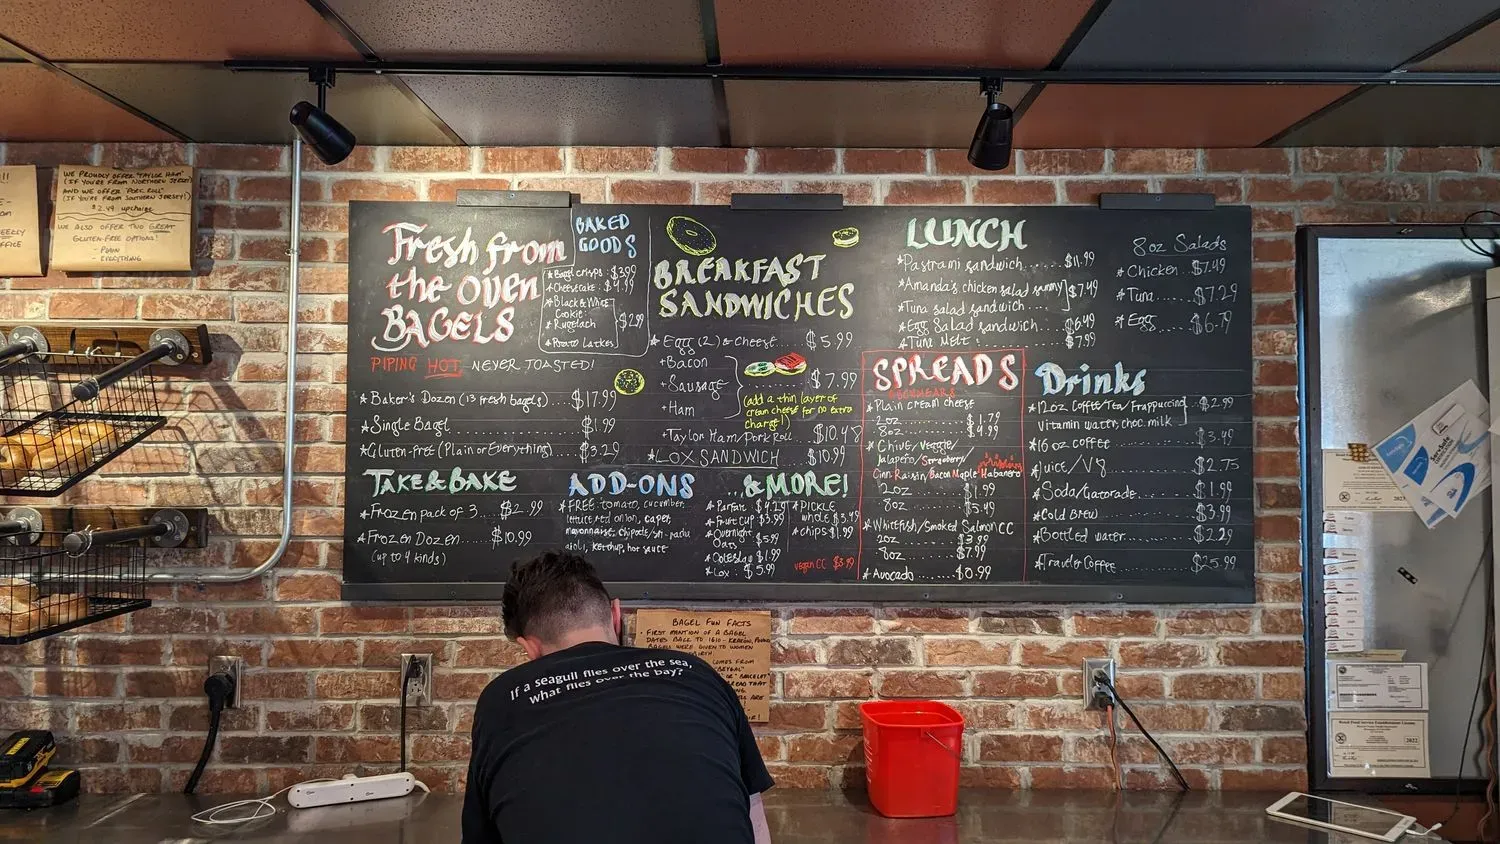 WE PROUDLY OFFER "TAYLOR HAM"
(IF YOU'RE FROM NORTHERN JERSEY)
AND WE OFFER "PORK ROLL"
(IF YOU'RE FROM SOUTHERN JERSEY!)
$2.49 upcharge
WE ALSO OFFER TWO GREAT
GLUTEN-FREE OPTIONS!
- PLAIN
- EVERYTHING
Fresh from
the oven
BAGELS
PIPING HOT NEVER TOASTED!
*Baker's Dozen (13 fresh bagels)....$17.99
*Single Bagel $1.99
*Gluten-free (Plain or Everything) $3.29
BAKED
GOODS
*Bagel crisps: $3.99
*Cheesecake: $4.99
*Black & White
Cookie
*Rugelach $2.99
*Potato Latkes
TAKE & BAKE
*Frozen pack of 3....
*Frozen Dozen....$10.99
(up to 4 kinds)
BREAKFAST
SANDWICHES
*Egg (2) & Cheese....$5.99
+Bacon
+Sausage $7.99
+Ham
(add a thin layer of
cream cheese for no extra
charge!)
+Taylor Ham/Pork Roll $10.48
*LOX SANDWICH $10.99
ADD-ONS
FREE: tomato, cucumber,
lettuce, red onion, caper,
mayonnaise, chipotle/sri-racha
aioli, ketchup, hot sauce
...& MORE!
*Parfait $4.29
*Fruit cup $3.99
*Overnight
Oats $5.99
*Coleslaw $1.99
*Lox: $5.99
*PICKLE
whole $3.49
*chips $1.99
vegan CC
LUNCH
*Pastrami sandwich......$11.99
*Amanda's chicken salad sammy $7.49
*Tuna salad sandwich
*Egg Salad sandwich....$6.49
*Tuna Melt $7.99
8oz Salads
*Chicken..$7.49
*Tuna......$7.29
*Egg.......$6.79
SPREADS
*Plain cream cheese
2oz $1.79
8oz $4.99
*Chive/Veggie/
Jalapeño/Strawberry/
Cinn. Raisin/Bacon Maple Habanero
2oz $1.99
8oz $5.49
*Whitefish/Smoked Salmon CC
2oz $3.99
8oz $7.99
*Avocado......$0.99
Drinks
*12oz Coffee/Tea/Frappuccino $2.99
Vitamin water, choc. milk
*16 oz coffee $3.49
*Juice/V8 $2.75
*Soda/Gatorade $1.99
*Cold Brew $3.99
*Bottled water $2.29
*Traveler Coffee $25.99
BAGEL FUN FACTS
FIRST MENTION OF A BAGEL
DATES BACK TO 1610 - KRAKOW, POLAND
BAGELS WERE GIVEN TO WOMEN
COMES FROM
If a seagull flies over the sea,
What flies over the bay?
2022